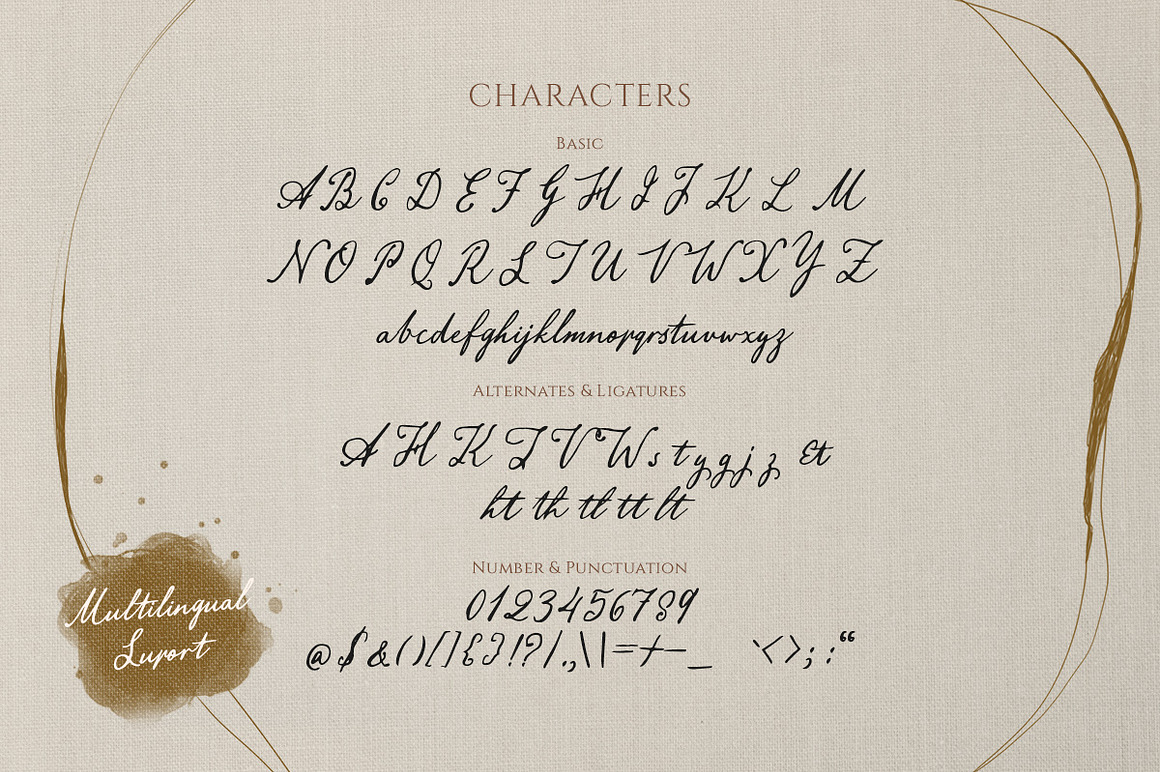 CHARACTERS
BASIC
A B C D E F G H I J K L M
N O P Q R S T U V W X Y Z
abcdefghijklmnopqrstuvwxyz
ALTERNATES & LIGATURES
A H K I V W s t y g j z &t
ht th tl tt lt
NUMBER & PUNCTUATION
0123456789
@$&()[]{}!?/.,\|=+-_ `<>;:“
Multilingual
Suport